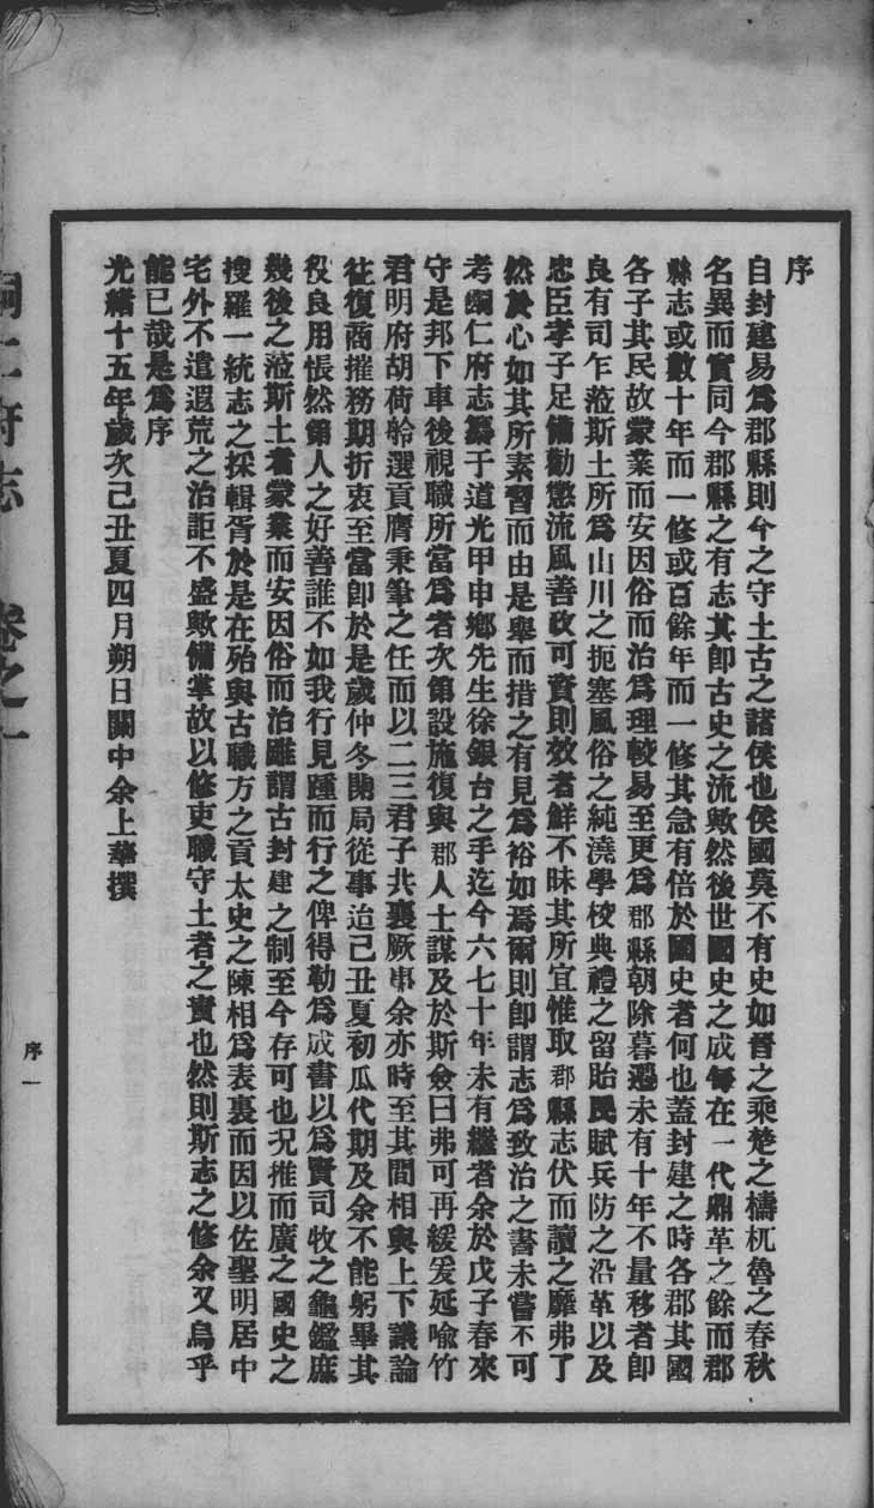 序
自封建易爲郡縣則今之守土古之諸侯也侯國莫不有史如晉之乘楚之檮杌魯之春秋
名異而實同今郡縣之有志其卽古史之流歟然後世國史之成每在一代鼎革之餘而郡
縣志或數十年而一修或百餘年而一修其急有倍於國史者何也蓋封建之時各郡其國
各子其民故蒙業而安因俗而治爲理較易至更爲郡縣朝除暮遷未有十年不量移者卽
良有司乍蒞斯土所爲山川之扼塞風俗之純澆學校典禮之留貽民賦兵防之沿革以及
忠臣孝子足備勸懲流風善政可資則效者鮮不昧其所宜惟取郡縣志伏而讀之靡弗了
然於心如其所素習而由是舉而措之有見爲裕如焉爾則卽謂志爲致治之書未嘗不可
考銅仁府志纂于道光甲申鄉先生徐銀台之手迄今六七十年未有繼者余於戊子春來
守是邦下車後視職所當爲者次第設施復與郡人士謀及於斯僉曰弗可再緩爰延喻竹
君明府胡荷舲選貢膺秉筆之任而以二三君子共襄厥事余亦時至其間相與上下議論
往復商搉務期折衷至當卽於是歲仲冬開局從事迨己丑夏初瓜代期及余不能躬畢其
役良用悵然第人之好善誰不如我行見踵而行之俾得勒爲成書以爲賢司牧之龜鑑庶
幾後之蒞斯土者蒙業而安因俗而治雖謂古封建之制至今存可也况推而廣之國史之
搜羅一統志之採輯胥於是在殆與古職方之貢太史之陳相爲表裏而因以佐聖明居中
宅外不遺遐荒之治詎不盛歟備掌故以修吏職守土者之責也然則斯志之修余又烏乎
能已哉是爲序
光緒十五年歲次己丑夏四月朔日關中余上華撰
銅仁府志 卷之一
序一